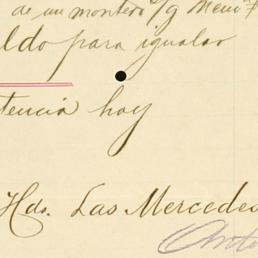 de un montero
ldo para igualar
tencia hoy
Hda. Las Mercedes